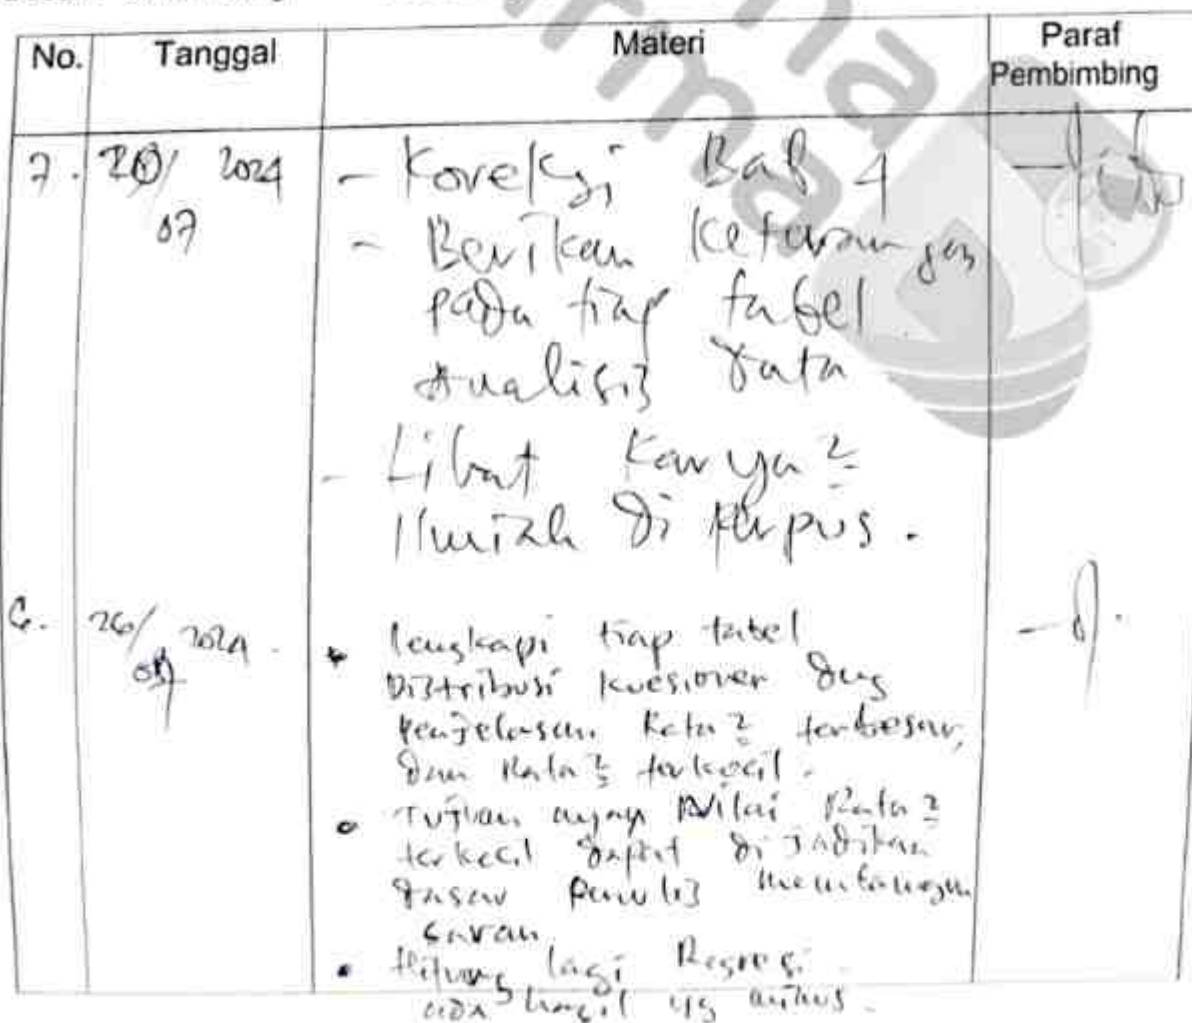 No. Tanggal Materi Paraf Pembimbing
7. 2024 - Koreksi Bab 4
07 - Berikan Keterangan
pada tiap tabel
Analisis data
- Lihat Karya2
Ilmiah di perpus.
26/ 2024. lengkapi tiap tabel
Distribusi kuesioner dng
penjelasan Rata2 terbesar,
dan Rata2 terkecil.
Tujuan Nilai Rata2
terkecil dapat di Jadikan
dasar penulis
saran
Hitung lagi Regresi
ada hasil yg